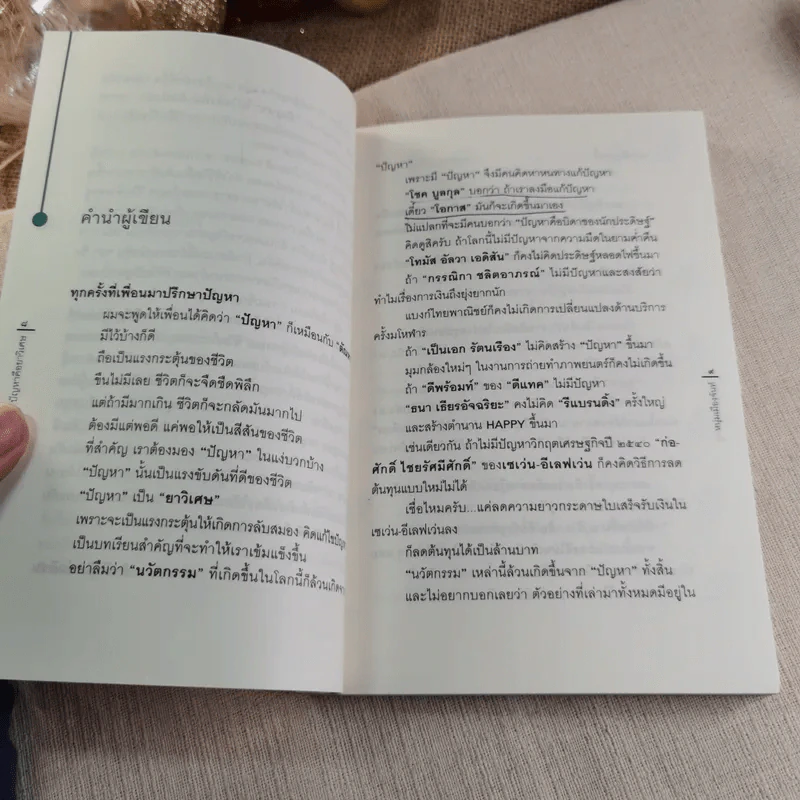 คำนำผู้เขียน
ทุกครั้งที่เพื่อนมาปรึกษาปัญหา
ผมจะพูดให้เพื่อนได้คิดว่า “ปัญหา” ก็เหมือนกับ
มีไว้บ้างก็ดี
ถือเป็นแรงกระตุ้นของชีวิต
ขืนไม่มีเลย ชีวิตก็จะจืดชืดพิลึก
แต่ถ้ามีมากเกิน ชีวิตก็จะกลัดมันมากไป
ต้องมีแต่พอดี แค่พอให้เป็นสีสันของชีวิต
ที่สำคัญ เราต้องมอง “ปัญหา” ในแง่บวกบ้าง
“ปัญหา” นั้นเป็นแรงขับดันที่ดีของชีวิต
“ปัญหา” เป็น “ยาวิเศษ”
เพราะจะเป็นแรงกระตุ้นให้เกิดการลับสมอง คิดแก้ไขปัญหา
เป็นบทเรียนสำคัญที่จะทำให้เราเข้มแข็งขึ้น
อย่าลืมว่า “นวัตกรรม” ที่เกิดขึ้นในโลกนี้ก็ล้วนเกิด
ปัญหาคือยาวิเศษ
“ปัญหา”
เพราะมี “ปัญหา” จึงมีคนคิดหาหนทางแก้ปัญหา
“โชค บูลกุล” บอกว่า ถ้าเราลงมือแก้ปัญหา
เดี๋ยว “โอกาส” มันก็จะเกิดขึ้นมาเอง
ไม่แปลกที่จะมีคนบอกว่า “ปัญหาคือบิดาของนักประดิษฐ์”
คิดดูสิครับ ถ้าโลกนี้ไม่มีปัญหาจากความมืดในยามค่ำคืน
“โทมัส อัลวา เอดิสัน” ก็คงไม่คิดประดิษฐ์หลอดไฟขึ้นมา
ถ้า “กรรณิกา ชลิตอาภรณ์” ไม่มีปัญหาและสงสัยว่า
ทำไมเรื่องการเงินถึงยุ่งยากนัก
แบงก์ไทยพาณิชย์ก็คงไม่เกิดการเปลี่ยนแปลงด้านบริการ
ครั้งมโหฬาร
ถ้า “เป็นเอก รัตนเรือง” ไม่คิดสร้าง “ปัญหา” ขึ้นมา
มุมกล้องใหม่ๆ ในงานการถ่ายทำภาพยนตร์ก็คงไม่เกิดขึ้น
ถ้า “ดีพร้อมท์” ของ “ดีแทค” ไม่มีปัญหา
“ธนา เธียรอัจฉริยะ” คงไม่คิด “รีแบรนดิ้ง” ครั้งใหญ่
และสร้างตำนาน HAPPY ขึ้นมา
เช่นเดียวกัน ถ้าไม่มีปัญหาวิกฤตเศรษฐกิจปี ๒๕๔๐ “ก่อ-
ศักดิ์ ไชยรัศมีศักดิ์” ของเซเว่น-อีเลฟเว่น ก็คงคิดวิธีการลด
ต้นทุนแบบใหม่ไม่ได้
เชื่อไหมครับ...แค่ลดความยาวกระดาษใบเสร็จรับเงินใน
เซเว่น-อีเลฟเว่นลง
ก็ลดต้นทุนได้เป็นล้านบาท
“นวัตกรรม” เหล่านี้ล้วนเกิดขึ้นจาก “ปัญหา” ทั้งสิ้น
และไม่อยากบอกเลยว่า ตัวอย่างที่เล่ามาทั้งหมดมีอยู่ใน
หนุ่มเมืองจันท์